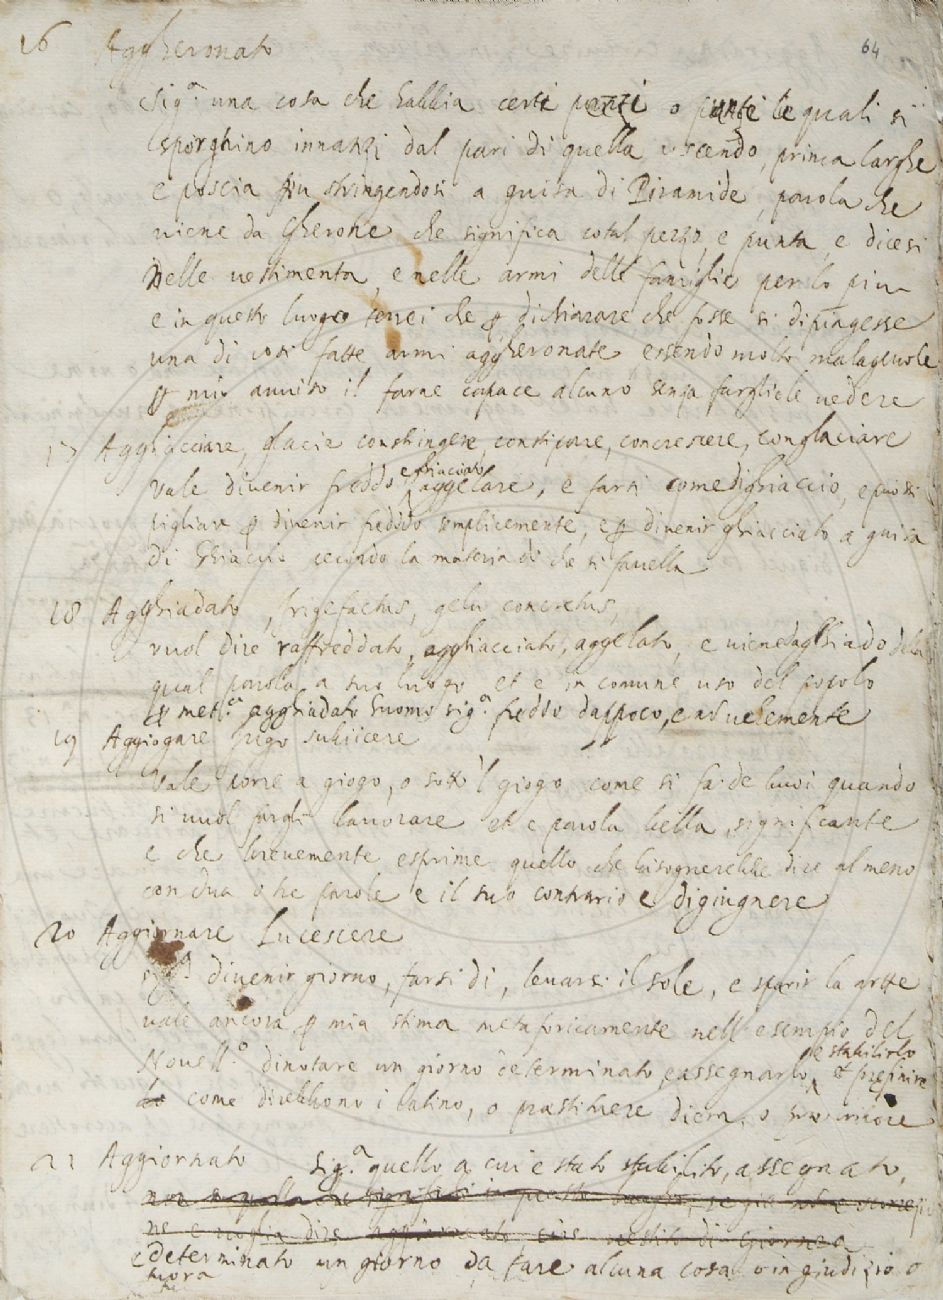 64
16 Aggheronato
Sig.ª una cosa che habbia certi pezzi o punte le quali si
sporghino innanzi dal pari di quella uscendo, prima larghe
e poscia piu stringendosi a guisa di Piramide, parola che
viene da Gherone che significa cotal pezzo, e punta, e dicesi
Nelle vestimenta, e nelle armi delle famiglie per lo piu
e in questo luogo terrei che ꝑ dichiarare che fosse si dipingesse
una di cosi fatte armi aggheronate essendo molto malagevole
ꝑ mio avviso il farne capace alcuno senza fargliele vedere
17 Agghiacciare, glacie constringere, constipare, concrescere, conglaciare
vale divenir freddo e ghiacciato aggelare, e farsi come di ghiaccio, e puossi
pigliare ꝑ divenir freddo semplicemente, e ꝑ divenir ghiacciato a guisa
di Ghiaccio secondo la materia di che si favella
18 Agghiadato, frigefactus, gelu concretus,
vuol dire raffreddato, agghiacciato, aggelato, e viene da ghiado della
qual parola a suo luogo et è in comune uso del popolo
ꝑ met.ª agghiadato huomo sig.ª freddo dappoco, e
19 Aggiogare jugo subiicere
vale porre a giogo, o sotto 'l giogo come si fa de buoi quando
si vuol fargli lavorare et è parola bella, significante
e che brevemente esprime quello che bisognerebbe dire al meno
con dua o tre parole e il suo contrario è digiugnere
20 Aggiornare Lucescere
sig.ª divenir giorno, farsi dì, levarsi il sole, e sparir la notte
vale ancora ꝑ mia stima metaforicamente nell'esempio del
Novell.º dinotare un giorno determinato, e assegnarlo, e stabilirlo et prefinire
come direbbono i latino, o praestituere diem, o
21 Aggiornato Sig.ª quello a cui è stato stabilito, assegnato,
e determinato un giorno da fare alcuna cosa o in giudizio o
fuora